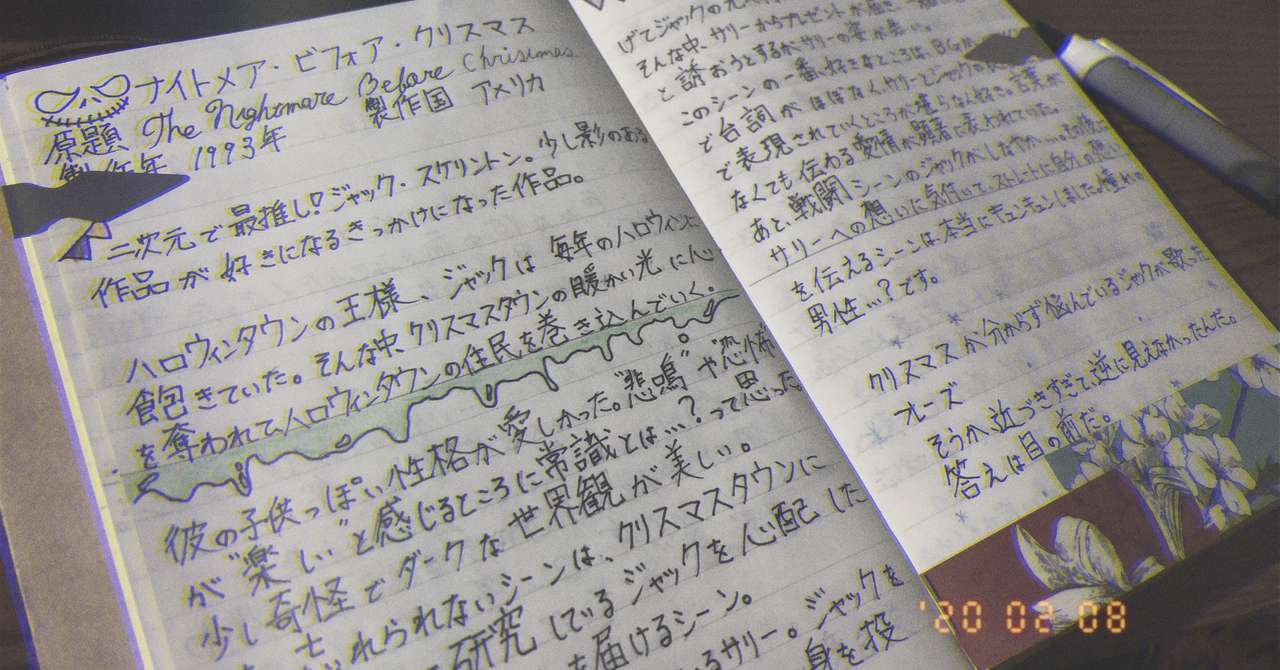 ナイトメア・ビフォア・クリスマス
原題 The Nightmare Before Christmas
製作年 1993年 製作国 アメリカ
二次元で最推し!ジャック・スケリントン。少し影のある
作品が好きになるきっかけになった作品。
ハロウィンタウンの王様、ジャックは毎年のハロウィンに
飽きていた。そんな中、クリスマスタウンの暖かい光に心
を奪われて、ハロウィンタウンの住民を巻き込んでいく。
彼の子供っぽい性格が愛しかった。"悲鳴"や"恐怖
が"楽しい"と感じるところに常識とは…?って思った
少し奇怪でダークな世界観が美しい。
れられないシーンは、クリスマスタウンに
研究しているジャックを心配した
を届けるシーン。
いるサリー。ジャックを
身を投
げてジャックの
そんな中、サリーからプレゼントが届き、
と誘おうとするが、サリーの姿が無い。
このシーンの一番、好きなところは、BGM
で台詞がほぼなく、サリーとジャックの
で表現されていくところが堪らなく好き。言葉が
なくても伝わる愛情が顕著に表われていた。
あと、戦闘シーンのジャックがしなやか…。その後に
サリーへの想いに気付いて、ストレートに自分の想い
を伝えるシーンは本当にキュンキュンしました。憧れの
男性…?です。
クリスマスが分からず悩んでいるジャックが歌った
フレーズ
そうか、近づきすぎて、逆に見えなかったんだ。
答えは目の前だ。
'20 02 08